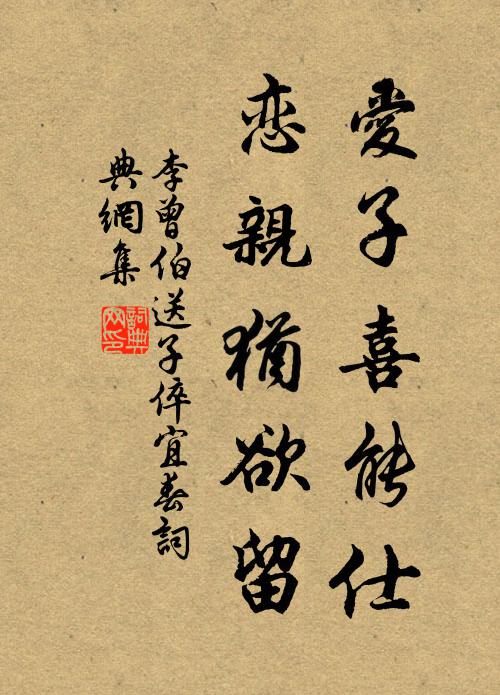 愛子喜能仕
恋親猶欲留
李曾伯送子倅宜春詞
典網集
詞典网印